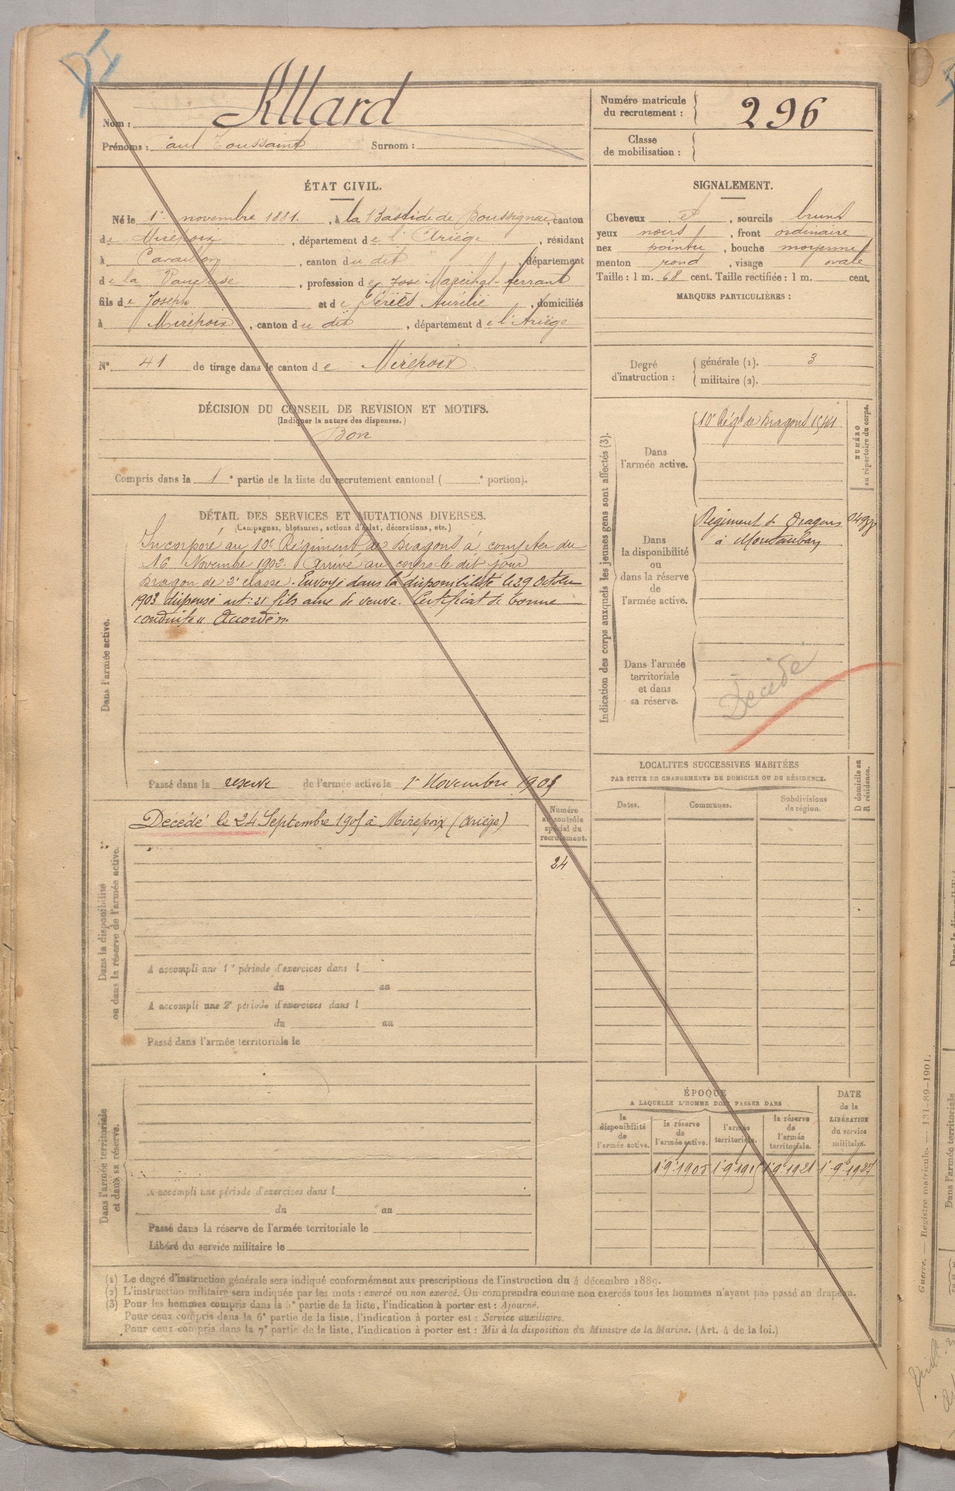 Nom : Allard
Prénoms : Paul Toussaint Surnom :
Numéro matricule du recrutement : 296
Classe de mobilisation :
ÉTAT CIVIL.
Né le 1er novembre 1881, à la Bastide de Boussignac, canton
de Mirepoix, département de l'Ariège, résidant
à Cavaillon, canton du dit, département
de , profession de Maréchal-ferrant
fils de Joseph et de Aurélie, domiciliés
à Mirepoix, canton du dit, département de l'Ariège
N° 41 de tirage dans le canton de Mirepoix
SIGNALEMENT.
Cheveux et, sourcils bruns
yeux noirs, front ordinaire
nez pointu, bouche moyenne
menton rond, visage ovale
Taille : 1 m. 68 cent. Taille rectifiée : 1 m. cent.
MARQUES PARTICULIÈRES :
Degré d'instruction :
générale (1). 3
militaire (2).
DÉCISION DU CONSEIL DE REVISION ET MOTIFS.
(Indiquer la nature des dispenses.)
Bon
Compris dans la 1e partie de la liste du recrutement cantonal ( e portion).
DÉTAIL DES SERVICES ET MUTATIONS DIVERSES.
(Campagnes, blessures, actions d'éclat, décorations, etc.)
Dans l'armée active.
Incorporé au 10e Régiment de Dragons à compter du
16 Novembre 1902. Arrivé au corps le dit jour
Dragon de 2e classe. Envoyé dans la disponibilité le 29 Octobre
1903 dispensé art: 21 fils aîné de veuve. Certificat de bonne
conduite "Accordé".
Passé dans la réserve de l'armée active le 1er Novembre 1905
Dans la disponibilité ou dans la réserve de l'armée active.
Décédé le 24 Septembre 190 à Mirepoix (Ariège)
Numéro au contrôle spécial du recrutement.
24
A accompli une 1re période d'exercices dans l
du au
A accompli une 2e période d'exercices dans l
du au
Passé dans l'armée territoriale le
Dans l'armée territoriale et dans sa réserve.
A accompli une période d'exercices dans l
du au
Passé dans la réserve de l'armée territoriale le
Libéré du service militaire le
Indication des corps auxquels les jeunes gens sont affectés (3).
NUMÉRO au répertoire du corps.
Dans l'armée active.
10e Régt de Dragons
Dans la disponibilité ou dans la réserve de l'armée active.
Régiment de Dragons
à Montauban
Dans l'armée territoriale et dans sa réserve.
Décédé
LOCALITES SUCCESSIVES HABITÉES
PAR SUITE DE CHANGEMENTS DE DOMICILE OU DE RÉSIDENCE.
D domicile ou R résidence.
Dates. Communes. Subdivisions de région.
ÉPOQUE
A LAQUELLE L'HOMME DOIT PASSER DANS
la disponibilité de l'armée active.
la réserve de l'armée active.
l'armée territoriale.
la réserve de l'armée territoriale.
DATE de la LIBÉRATION du service militaire.
1 9 1905 1 9 1915 1 9 1921 1 9 1927
(1) Le degré d'instruction générale sera indiqué conformément aux prescriptions de l'instruction du 4 décembre 1889.
(2) L'instruction militaire sera indiquée par les mots : exercé ou non exercé. On comprendra comme non exercés tous les hommes n'ayant pas passé au drapeau.
(3) Pour les hommes compris dans la 5e partie de la liste, l'indication à porter est : Ajourné.
Pour ceux compris dans la 6e partie de la liste, l'indication à porter est : Service auxiliaire.
Pour ceux compris dans la 7e partie de la liste, l'indication à porter est : Mis à la disposition du Ministre de la Marine. (Art. 4 de la loi.)
Guerre. Registre matricule. — 131-89-1901.